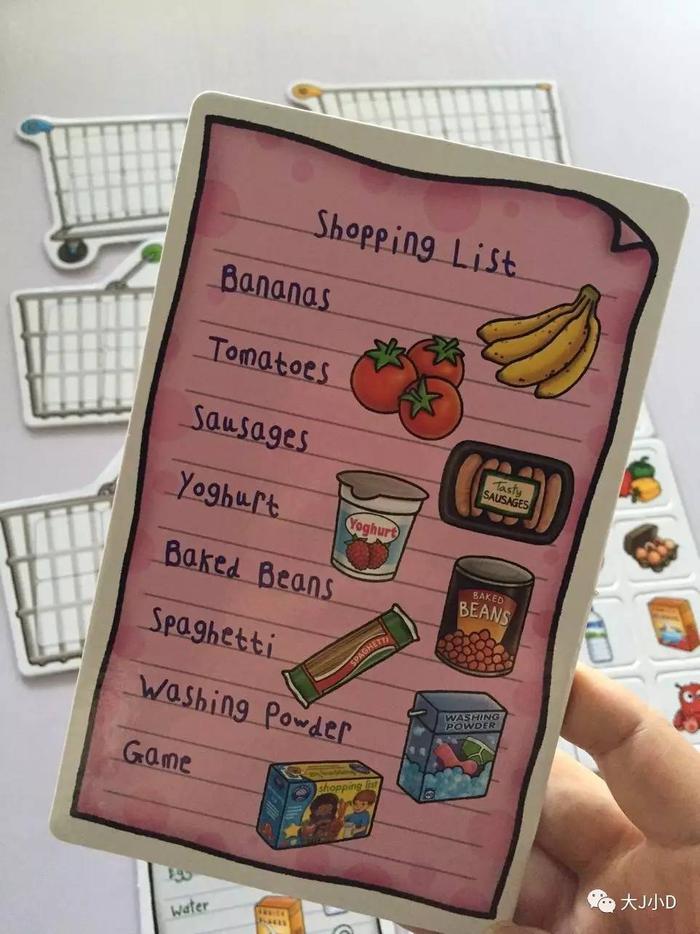 Shopping List
Bananas
Tomatoes
Sausages
Tasty
SAUSAGES
Yoghurt
Yoghurt
Baked Beans
BAKED
BEANS
Spaghetti
SPAGHETTI
Washing Powder
WASHING
POWDER
Game
shopping list
Egg
Water
大J小D